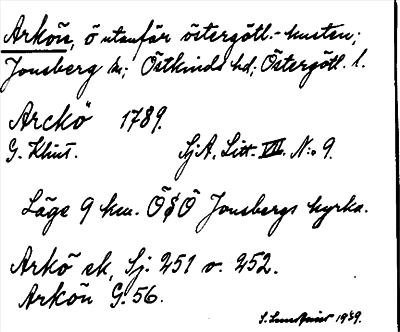 Arkön, ö utanför östergötl.-kusten;
Jonsberg sn; Östkinds hd; Östergötl. l.
Arckö 1789.
G. Klint. SjA. Litt. VII. N:o 9.
Läge 9 km. Ö$Ö Jonsbergs kyrka.
Arkö ek, Sj. 251 o. 252.
Arkön G. 56.
S. Lundqvist 1939.